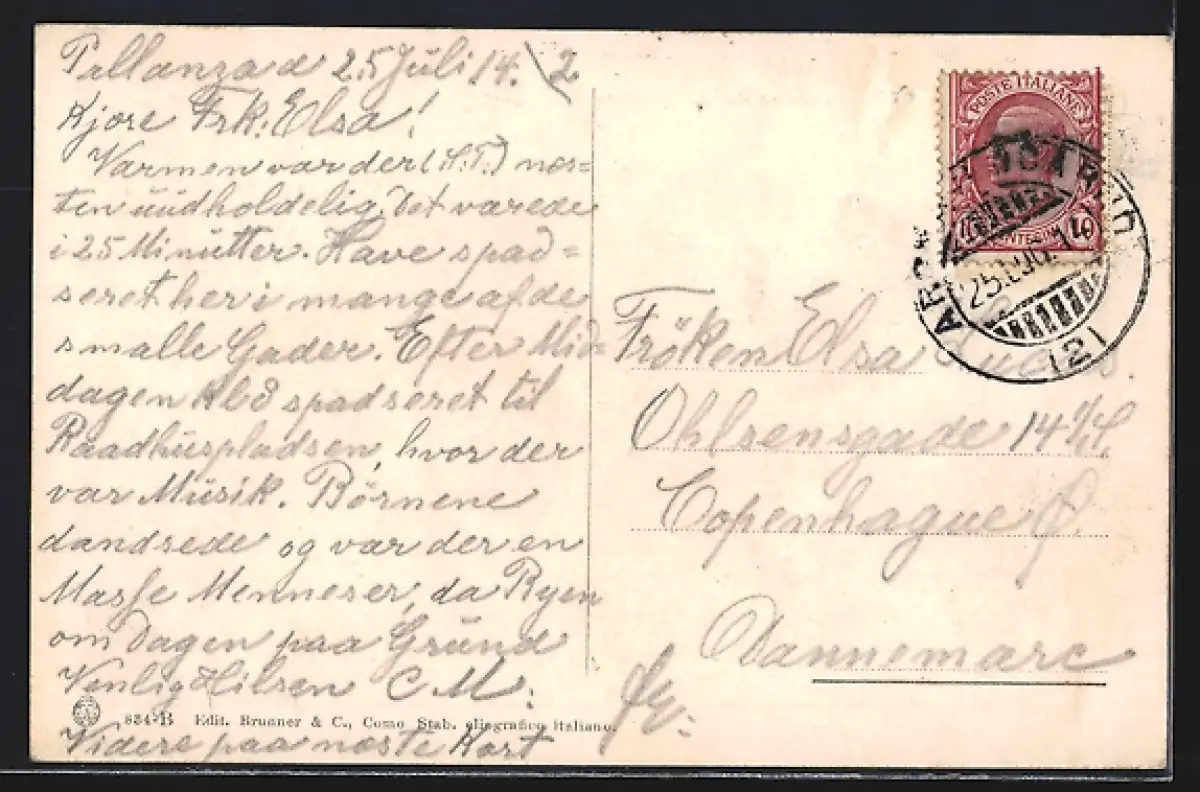 Pallanza d 25 Juli 14. 2
Kjøre Frk: Elsa!
Varmen var der (S.T.) næs=
ten uudholdelig. Det varede
i 25 Minutter. Have spad=
seret her i mange af de
smalle Gader. Efter Mid=
dagen Kl 8 spadseret til
Raadhuspladsen, hvor der
var Musik. Børnene
dandsede og var der en
Masse Menneser, da Ryen
om Dagen paa Grund
Venlig Hilsen C M:
834-B Edit. Brunner & C., Como Stab. eliografico italiano.
Videre paa næste Kort
POSTE ITALIANE
10
25. 14
(2)
Fröken Elsa
Ohlsensgade 14
Copenhague Ø.
Dannemarc